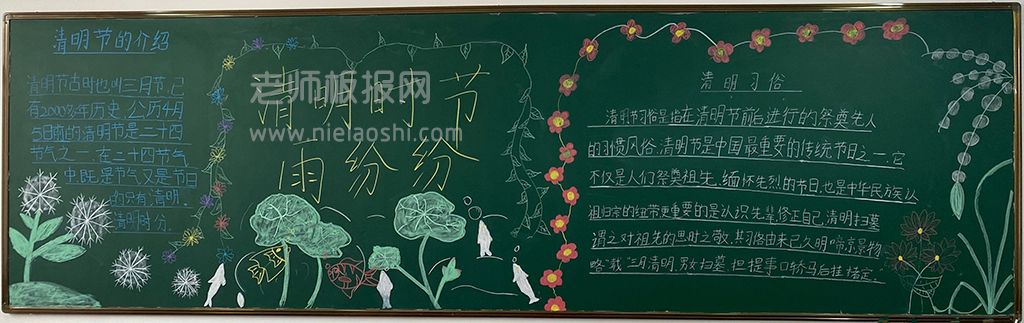 清明节的介绍
清明节古时也叫三月节,已
有2000多年历史,公历4月
5日前的清明节是二十四
节气之一,在二十四节气
中,既是节气又是节日
的只有清明。
清明时分。
清明时节
雨纷纷
老师板报网
www.nielaoshi.com
清明习俗
清明节习俗是指在清明节前后进行的祭奠先人
的习惯风俗,清明节是中国最重要的传统节日之一,它
不仅是人们祭奠祖先,缅怀先烈的节日,也是中华民族认
祖归宗的纽带更重要的是认识先辈修正自己,清明扫墓
谓之对祖先的思时之敬,其习俗由来已久明"帝京景物
略"载"三月清明,男女扫墓,担提 轿马后挂楮定,